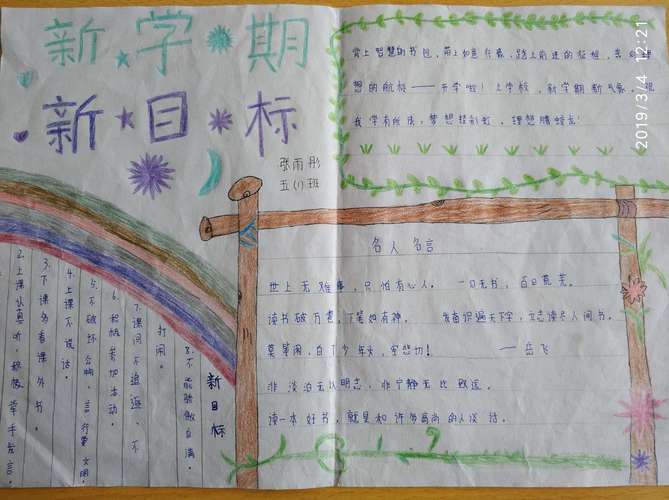 新学期
新目标
张雨彤
五(1)班
背上智慧的书包,带上如意行囊,踏上前进的征程,去
想的航标——开学啦!上学校,新学期新气象,祝
我学有所成,梦想挂彩虹,理想腾蛟龙!
2019/3/4 12:21
名人名言
世上无难事,只怕有心人。 一日无书,百日荒芜。
读书破万卷,下笔如有神。 发奋识遍天下字,立志读尽人间书。
莫等闲,白了少年头,空悲切! ——岳飞
非淡泊无以明志,非宁静无比致远。
读一本好书,就是和许多高尚的人谈话。
2019
新目标
8.不能骄傲自满。
7.课间不追逐、不
打闹。
6.积极参加活动。
5.不破坏公物,言行要文明。
4.上课不说话。
3.下课多看课外书。
2.上课认真听,积极举手发言。